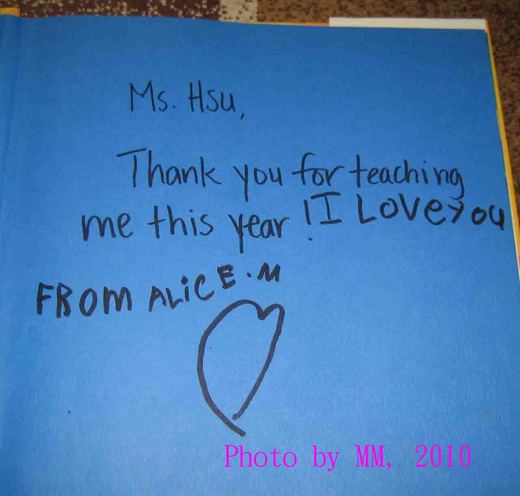 Ms. Hsu,
Thank you for teaching
me this year! I LOVE YOU
FROM ALiCE.M
Photo by MM, 2010